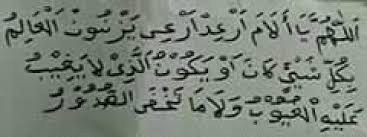 اَللّٰهُمَّ يَا أَلَامَ أَرْعِدْ أَرْعِى يَزْنُونَ الْعَالِمُ
بِكُلِّ شَيْئٍ كَانَ اَوْ يَكُوْنُ الَّذِىْ لَا يَغِيْبُ
عَلَيْهِ الْغُيُوْبُ وَلَا مَا تُخْفَى الصُّدُوْرُ